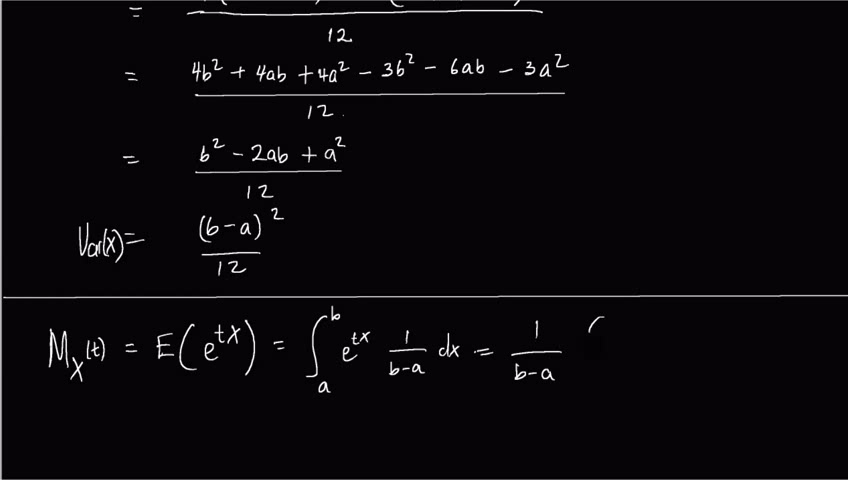 = 12
= 4b² + 4ab + 4a² - 3b² - 6ab - 3a² / 12.
= b² - 2ab + a² / 12
Var(x) = (b-a)² / 12
M_X(t) = E(e^{tX}) = ∫_a^b e^{tx} 1/(b-a) dx = 1/(b-a) (